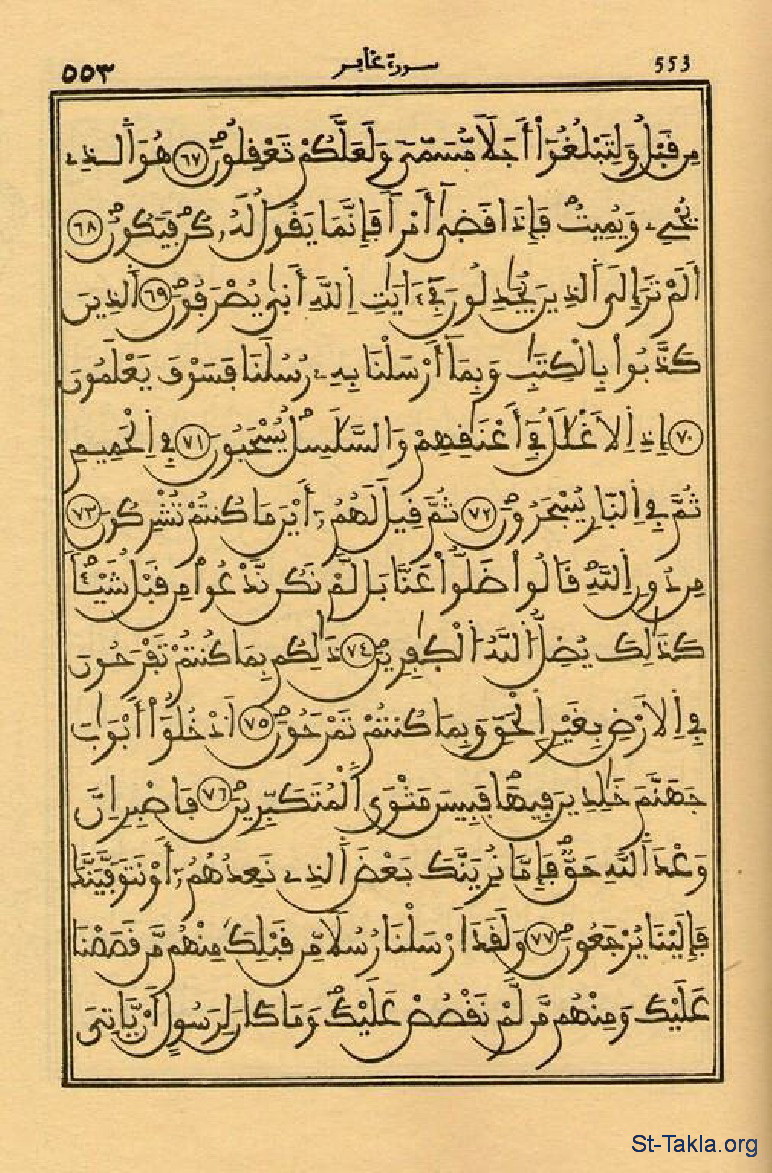 553 سورة غافر ٥٥٣
مِن قَبْلُ وَلِتَبْلُغُوٓاْ أَجَلاً مُّسَمّىً وَلَعَلَّكُمْ تَعْقِلُونَ ٦٧ هُوَ اَلذِے
يُحْيِۦ وَيُمِيتُ فَإِذَا قَضَىٰٓ أَمْراً فَإِنَّمَا يَقُولُ لَهُۥ كُن فَيَكُونُ ٦٨
أَلَمْ تَرَ إِلَى اَلذِينَ يُجَٰدِلُونَ فِےٓ ءَايَٰتِ اِللَّهِ أَنّ۪ىٰ يُصْرَفُونَ ٦٩ اَلذِينَ
كَذَّبُواْ بِالْكِتَٰبِ وَبِمَآ أَرْسَلْنَا بِهِۦ رُسُلَنَا فَسَوْفَ يَعْلَمُونَ
٧٠ إِذِ اِلَاغْلَٰلُ فِےٓ أَعْنَٰقِهِمْ وَالسَّلَٰسِلُ يُسْحَبُونَ ٧١ فِے اِلْحَمِيمِ
ثُمَّ فِے اِلنَّارِ يُسْجَرُونَ ٧٢ ثُمَّ قِيلَ لَهُمُۥٓ أَيْنَ مَا كُنتُمْ تُشْرِكُونَ ٧٣
مِن دُونِ اِللَّهِ قَالُواْ ضَلُّواْ عَنَّا بَل لَّمْ نَكُن نَّدْعُواْ مِن قَبْلُ شَيْـٔاً
كَذَٰلِكَ يُضِلُّ اُللَّهُ اُلْكَٰفِرِينَ ٧٤ ذَٰلِكُم بِمَا كُنتُمْ تَفْرَحُونَ
فِے اِلَارْضِ بِغَيْرِ اِلْحَقِّ وَبِمَا كُنتُمْ تَمْرَحُونَ ٧٥ اَدْخُلُوٓاْ أَبْوَٰبَ
جَهَنَّمَ خَٰلِدِينَ فِيهَا فَبِيسَ مَثْوَى اَلْمُتَكَبِّرِينَ ٧٦ فَاصْبِرِ اِنَّ
وَعْدَ اَللَّهِ حَقٌّ فَإِمَّا نُرِيَنَّكَ بَعْضَ اَلذِے نَعِدُهُمُۥٓ أَوْ نَتَوَفَّيَنَّكَ
فَإِلَيْنَا يُرْجَعُونَ ٧٧ وَلَقَدَ اَرْسَلْنَا رُسُلاً مِّن قَبْلِكَ مِنْهُم مَّن قَصَصْنَا
عَلَيْكَ وَمِنْهُم مَّن لَّمْ نَقْصُصْ عَلَيْكَ وَمَا كَانَ لِرَسُولٍ اَنْ يَّاتِىَ
St-Takla.org